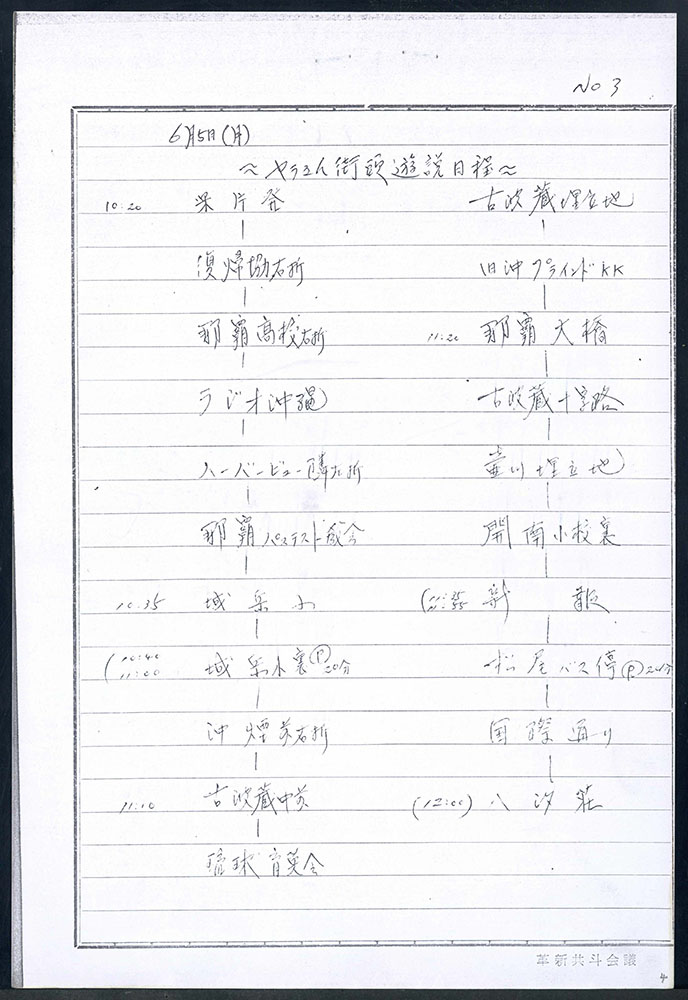 No 3
6月5日(月)
～ヤラさん街頭遊説日程～
10:20 県庁発
復帰協右折
那覇高校右折
ラジオ沖縄
ハーバービュー隣左折
那覇バプテスト教会
10:35 城岳小
(10:40 11:00 城岳小裏Ⓟ20分
沖煙前右折
11:10 古波蔵中前
琉球育英会
古波蔵埋立地
旧沖ブラインドKK
11:20 那覇大橋
古波蔵十字路
壷川埋立地
開南小校裏
(11:35 11:55 新
松尾バス停Ⓟ20分
国際通り
(12:00) 八汐荘
革新共斗会議
4